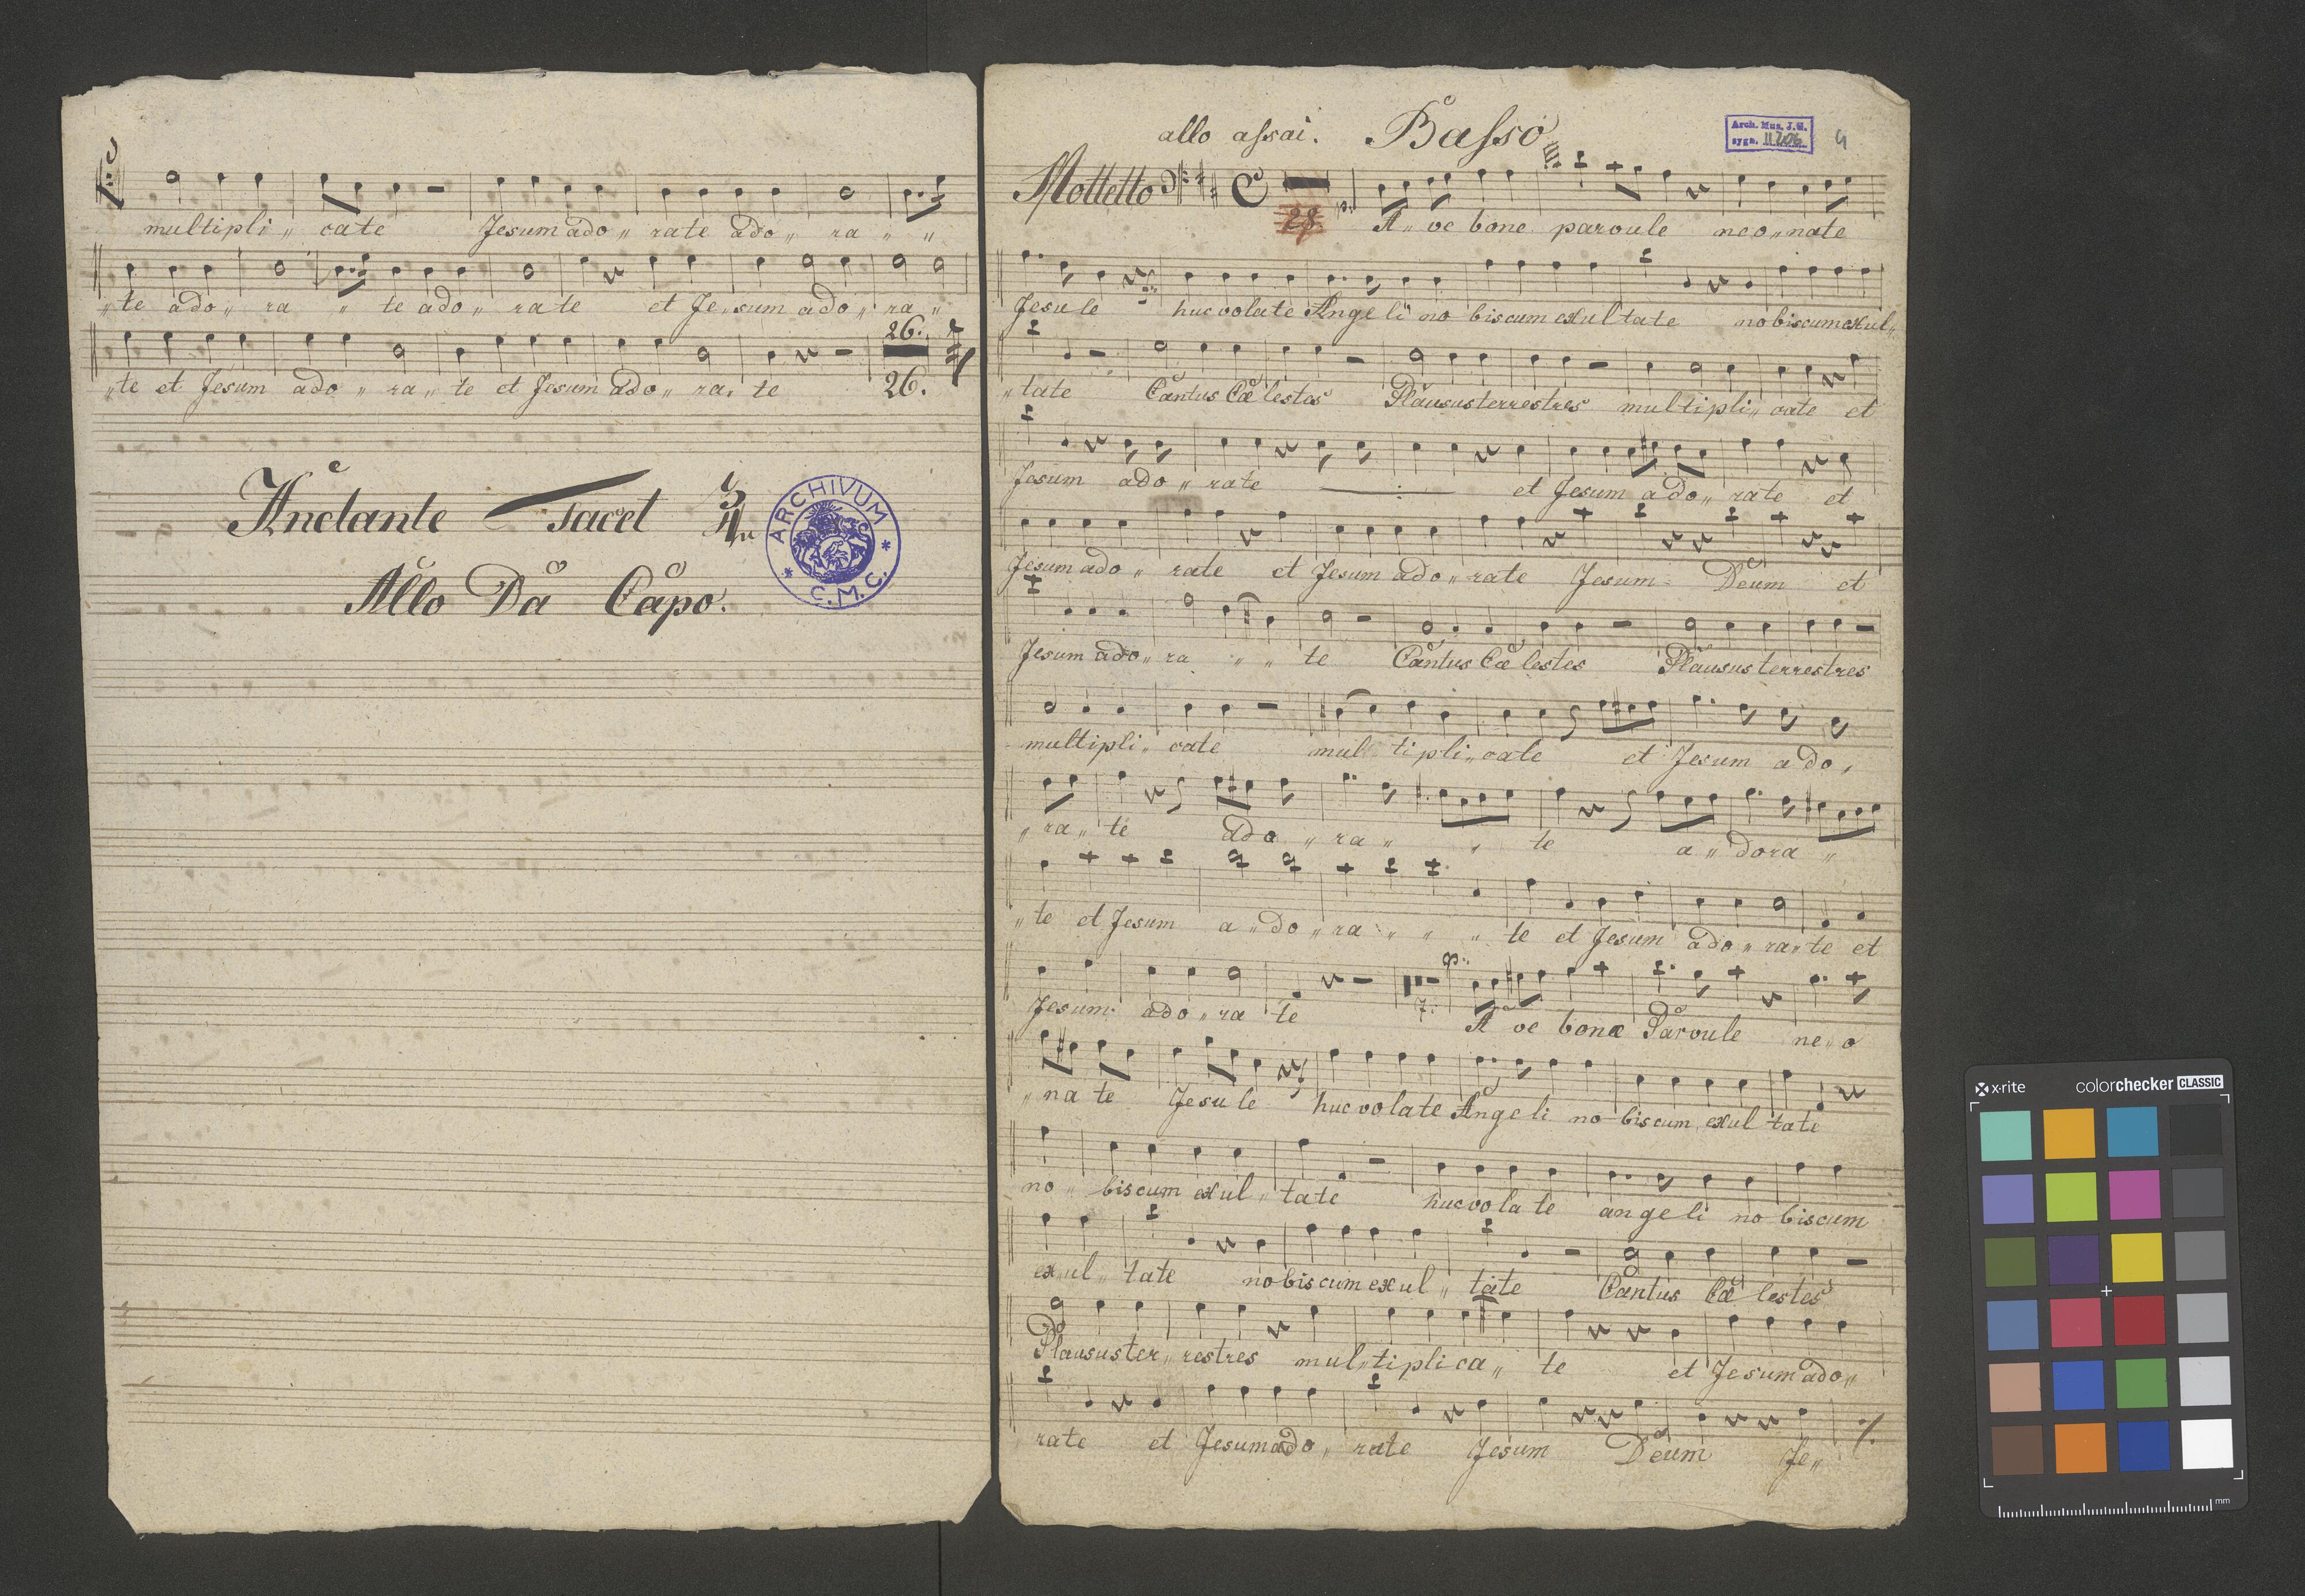 multipli „ cate Jesum ado „ rate ado „ ra „ „
„ te ado „ ra „ te ado „ rate et Je „ sum ado „ ra „
26.
„ te et Jesum ado „ ra „ te et Jesum ado „ ra „ te 26.
Andante Tacet 3/4
Allo Da Capo.
ARCHIVUM * C.M.C. *
allo assai. Basso
Arch. Mus. J.G.
sygn. II 206
4
Mottetto
28. A „ ve bone parvule neo „ nate
Jesule huc volate Angeli no biscum exul tate nobiscum exul „
„ tate Cantus Cæ lestes Plausus terrestres multipli „ cate et
Jesum ado „ rate et Jesum ado „ rate et
Jesum ado „ rate et Jesum ado „ rate Jesum Deum et
Jesum ado „ ra „ „ te Cantus Cæ lestes Plausus terrestres
multipli „ cate mul tipli „ cate et Jesum ado „
„ ra „ te ado „ ra „ „ te a „ dora „
„ te et Jesum a „ do „ ra „ „ „ te et Jesum ado „ ra „ te et
Jesum ado „ ra te 7. A ve bone Parvule ne „ o
„ na te Jesu le huc volate Angeli no biscum exul tate
no „ biscum exul „ tate huc vola te angeli no biscum
ex „ ul „ tate nobiscum exul „ tate Cantus Cæ lestes
Plaususter „ restres mul „ tiplica „ te et Jesum ado „
rate et Jesum ado „ rate Jesum Deum Je „
x-rite colorchecker CLASSIC
mm